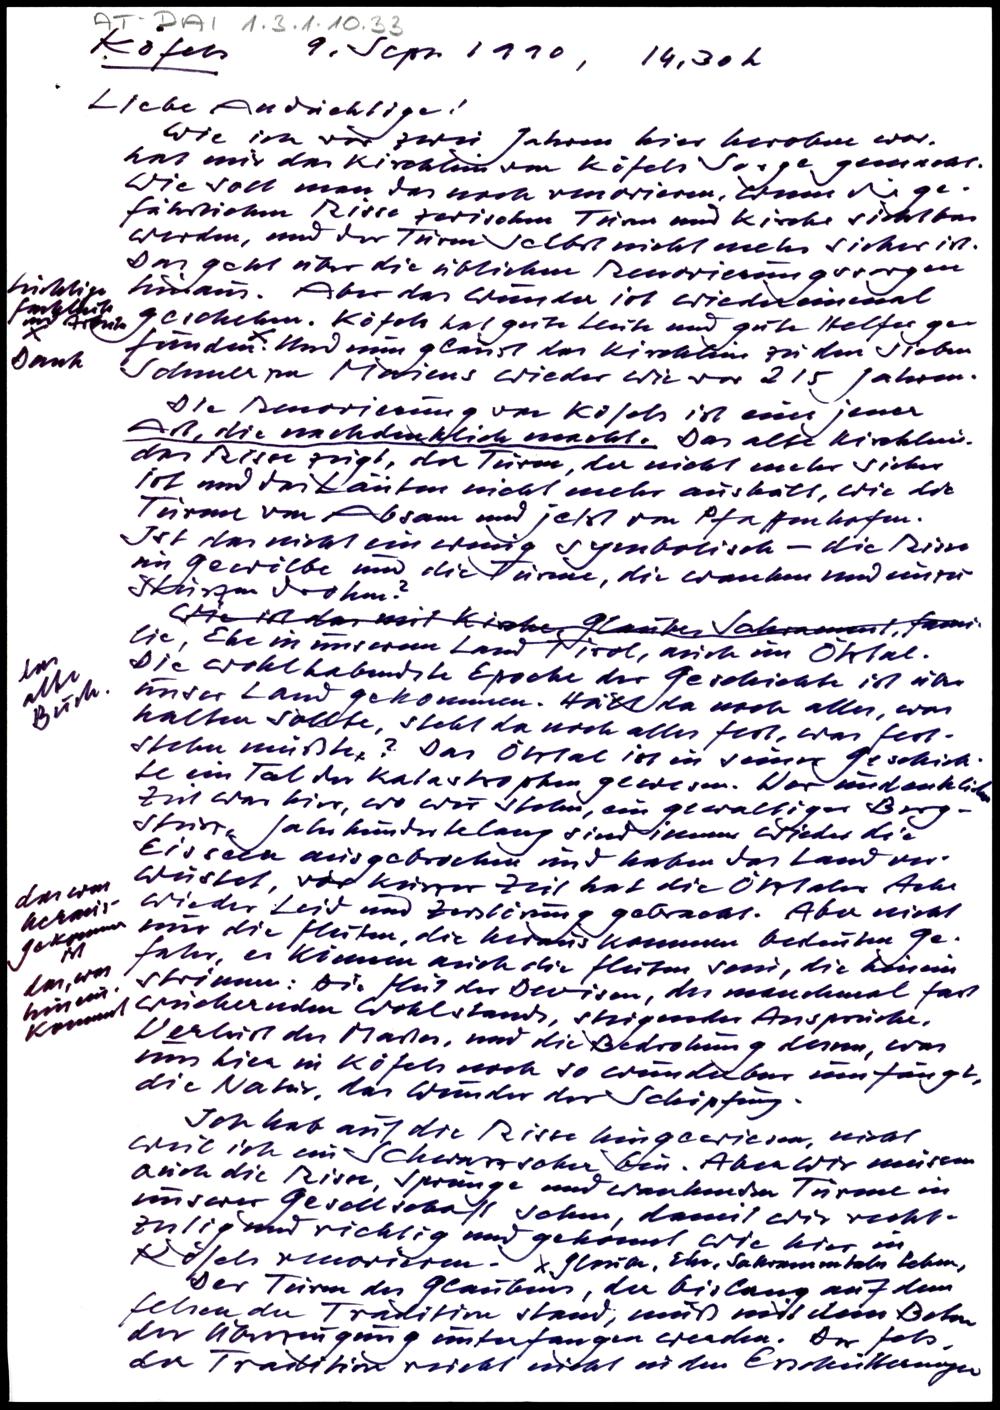 AT-DAI 1.3.1.10.33
Köfels 9. Sept. 1990, 14,30 h
Liebe Andächtige!
Wie ich vor zwei Jahren hier heroben war,
hat mir das Kirchlein von Köfels Sorge gemacht.
Wie soll man das noch renovieren, wenn die ge-
fährlichen Risse zwischen Turm und Kirche sichtbar
werden, und der Turm selbst nicht mehr sicher ist.
Das geht über die üblichen Renovierungssorgen
hinaus. Aber das Wunder ist wieder einmal
geschehen. Köfels hat gute Leute und gute Helfer ge-
funden. Und nun glänzt das Kirchlein zu den Sieben
Schmerzen Mariens wieder wie vor 215 Jahren.
tüchtige
Fachleute
und Arbeiter
x
Dank
Die Renovierung von Köfels ist eine jener
Art, die nachdenklich macht. Das alte Kirchlein,
das Risse zeigt, der Turm, der nicht mehr sicher
ist und das Läuten nicht mehr aushält, wie die
Türme von Absam und jetzt von Pfaffenhofen.
Ist das nicht ein wenig symbolisch – die Risse
im Gewölbe und die Türme, die wanken und einzu
stürzen drohen?
Wie ist das mit Kirche, Glaube, Sakrament, Fami-
lie, Ehe in unserem Land Tirol, auch im Ötztal.
Die wohlhabendste Epoche der Geschichte ist über
unser Land gekommen. Hält da noch alles, was
halten sollte, steht da noch alles fest, was fest-
stehn müßte? Das Ötztal ist in seiner Geschich-
te ein Tal der Katastrophen gewesen. Vor undenklicher
Zeit war hier, wo wir stehn, ein gewaltiger Berg-
sturz. Jahrhundertelang sind immer wieder die
Eisseen ausgebrochen und haben das Land ver-
wüstet, vor kurzer Zeit hat die Ötztaler Ache
wieder Leid und Zerstörung gebracht. Aber nicht
nur die Fluten, die herauskommen bedeuten Ge-
fahr, es können auch die Fluten sein, die hinein
strömen: Die Flut der Devisen, des manchmal fast
wuchernden Wohlstands, steigender Ansprüche,
Verlust des Maßes, und die Bedrohung dessen, was
uns hier in Köfels noch so wunderbar umfängt,
die Natur, das Wunder der Schöpfung.
das
alte
Buch.
das was
heraus-
gekommen
ist
das, was
hinein-
kommt
Ich hab auf die Risse hingewiesen, nicht
weil ich ein Schwarzseher bin. Aber wir müssen
auch die Risse, Sprünge und wankenden Türme in
unserer Gesellschaft sehen, damit wir recht-
zeitig und richtig und gekonnt wie hier in
Köfels renovieren. x Glaube, Ehe, Sakramentales Leben,
Der Turm des Glaubens, der bislang auf dem
Felsen der Tradition stand, muß mit dem Beton
der Überzeugung unterfangen werden. Der Fels
der Tradition reicht nicht in den Erschütterungen